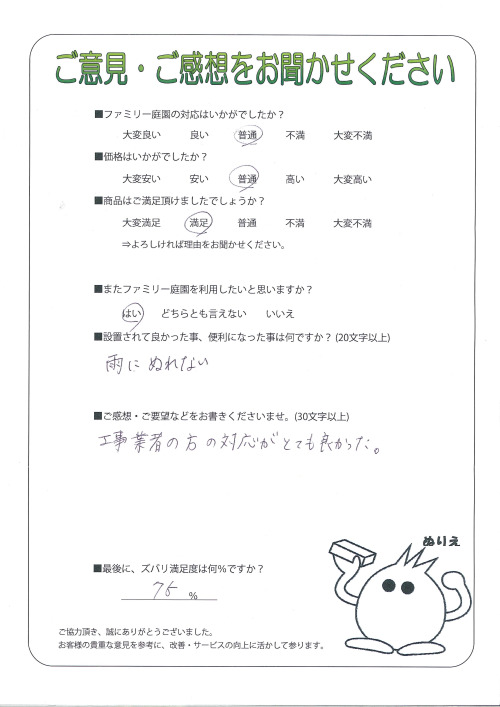 ご意見・ご感想をお聞かせください
■ファミリー庭園の対応はいかがでしたか？
大変良い　良い　普通　不満　大変不満
■価格はいかがでしたか？
大変安い　安い　普通　高い　大変高い
■商品はご満足頂けましたでしょうか？
大変満足　満足　普通　不満　大変不満
⇒よろしければ理由をお聞かせください。
■またファミリー庭園を利用したいと思いますか？
はい　どちらとも言えない　いいえ
■設置されて良かった事、便利になった事は何ですか？(20文字以上)
雨にぬれない
■ご感想・ご要望などをお書きくださいませ。(30文字以上)
工事業者の方の対応がとても良かった。
ぬりえ
■最後に、ズバリ満足度は何%ですか？
75 %
ご協力頂き、誠にありがとうございました。
お客様の貴重な意見を参考に、改善・サービスの向上に活かして参ります。